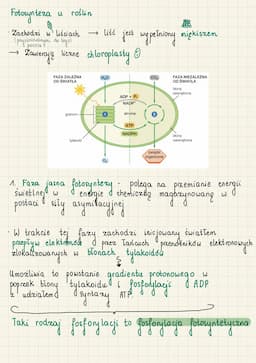 Fotosynteza u roślin
Zachodzi w liściach → liść jest wypełniony miękiszem
→ Zawierają liczne chloroplasty
FAZA ZALEŻNA
OD ŚWIATŁA
H₂O
CO₂
FAZA NIEZALEŻNA
OD ŚWIATŁA
ADP + Pi
NADP⁺
granum
stroma
ATP
NADPH
tylakoid
O₂
błona
zewnętrzna
błona
wewnętrzna
związki
organiczne
1. Faza jasna fotosyntezy - polega na przemianie energii
świetlnej w energię chemiczną magazynowaną w
postaci siły asymilacyjnej
• W trakcie tej fazy zachodzi inicjowany światłem
przepływ elektronów przez łańcuch przenośników elektronowych
zlokalizowanych w błonach tylakoidów
Umożliwia to powstanie gradientu protonowego w
poprzek błony tylakoidu i fosforylacji ADP
z udziałem syntazy ATP.
Taki rodzaj fosforylacji to fosforylacja fotosyntetyczna